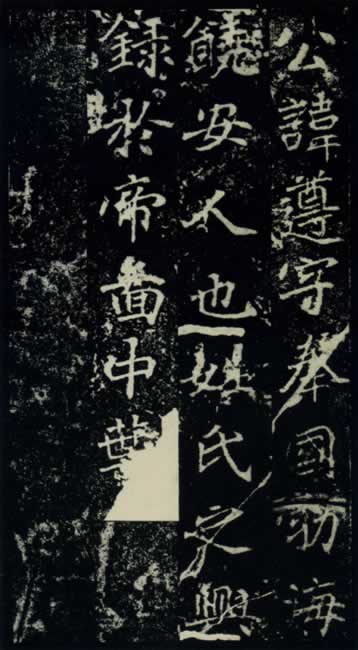 公諱遵字奉國勃海
饒安人也姓氏之興
録於帝圖中葉